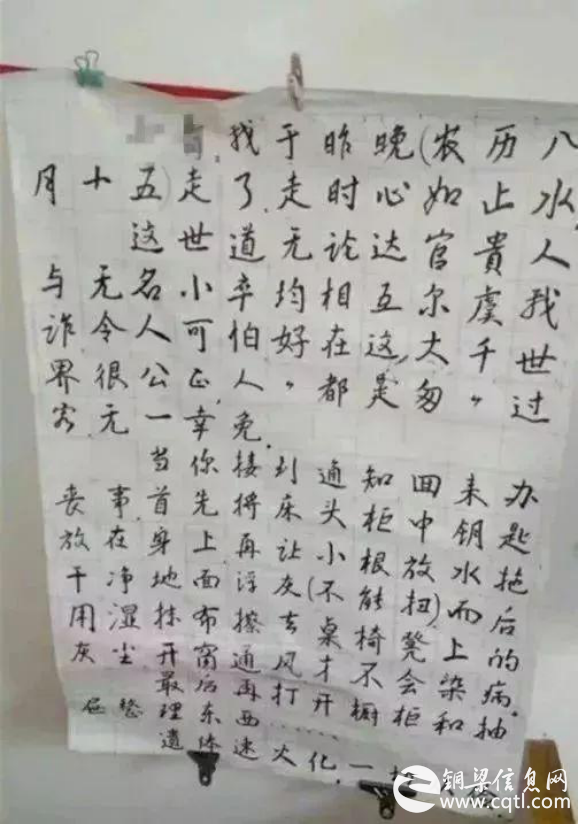 我于昨晚(农历八
月十五)走了,走时心如止水,
这世道无论达官贵人
与无名小卒均相互尔虞我
诈,令人可怕,“好在这大千世
界很公正,人人都是匆匆过
客,无一幸免。”
当你接到通知回来办
丧事,首先将床头柜中钥匙
放在身上,再让小根放水拖
干净地面浮灰(不能扭)而后
用湿抹布擦去桌椅凳上的
灰尘,开窗通风才不会染病.
最后再打开橱柜和抽
屉整理东西……
遗体速火化,一
铜梁信息网
www.cqtl.com